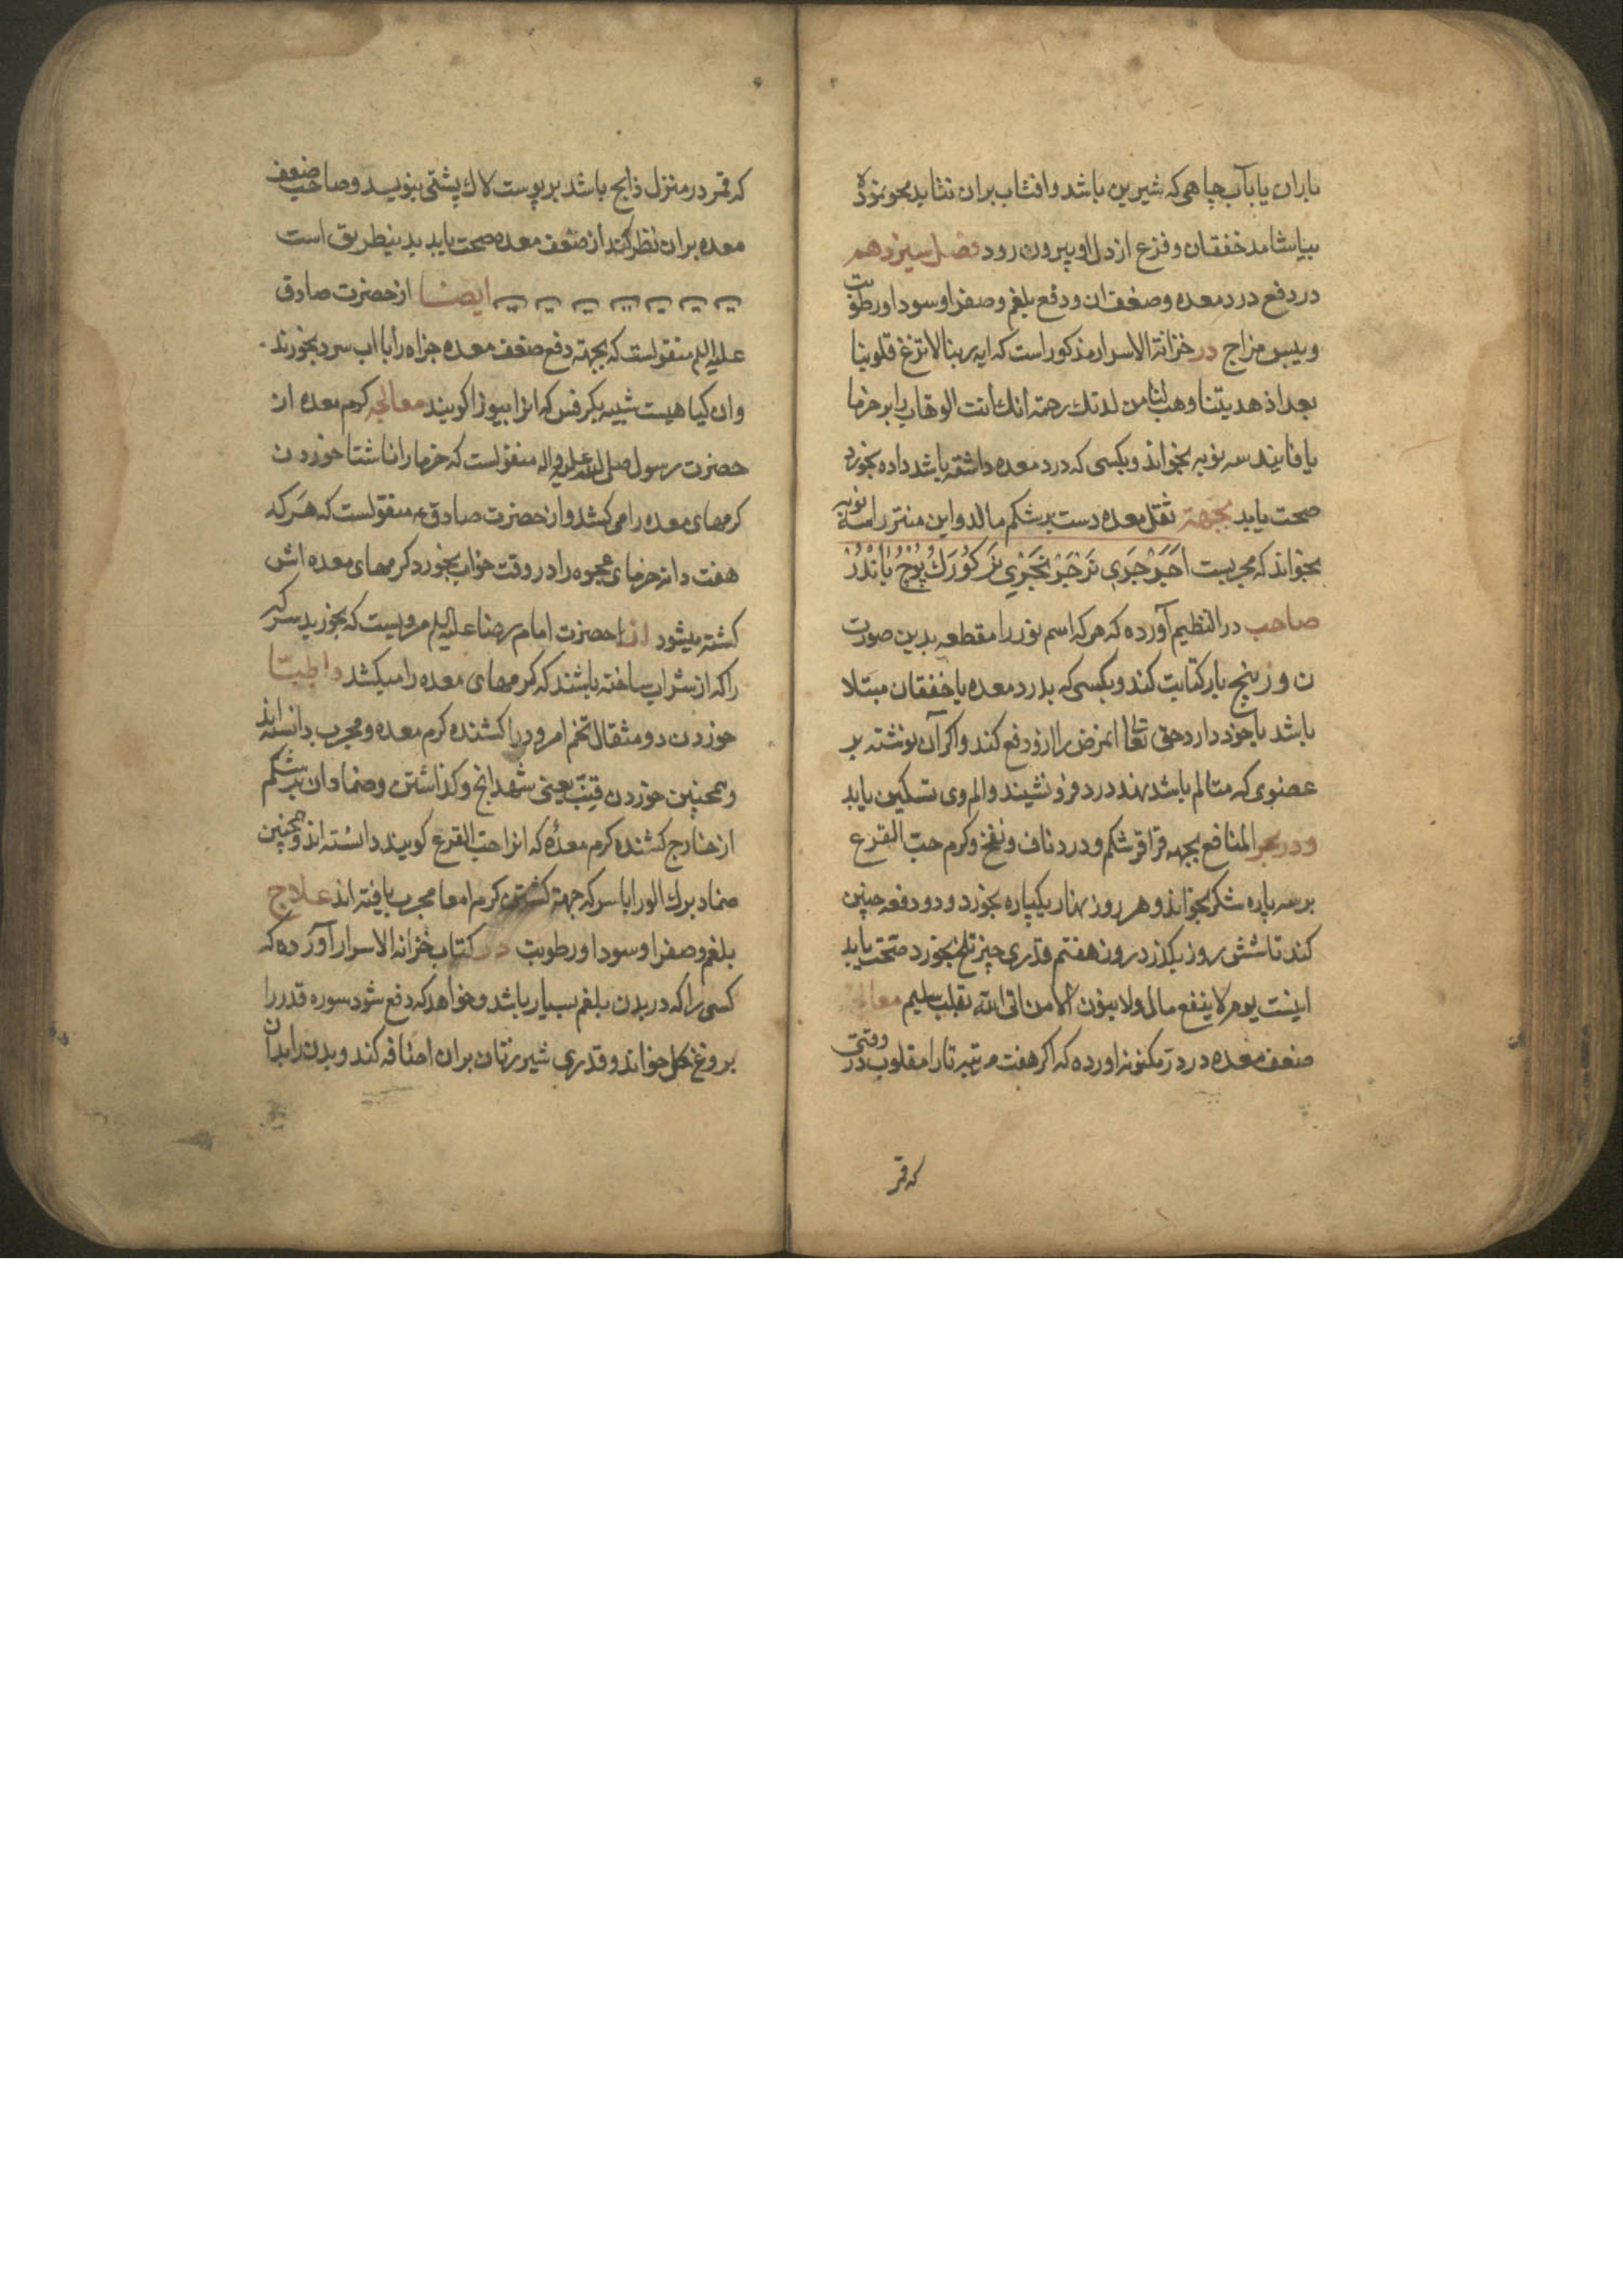 باران یا بآب چاهی که شیرین باشد و افتاب بران نتابد محو نموده
بیاشامد خفقان و فزع از دل او بیرون رود فصل سیزدهم
در دفع درد معده وضعف ان و دفع بلغم و صفرا و سودا و رطوبت
و یبس مزاج در خزانة الاسرار مذکور است که ایه ربنا لا تزغ قلوبنا
بعد اذ هدیتنا وهب لنا من لدنک رحمة انک انت الوهاب را بر خرما
یا فانید سه نوبه بخواند و بکسی که درد معده داشته باشد داده بخورد
صحت یابد بجهة ثقل معده دست بر شکم مالد و این منتر را سه نوبه
بخواند که مجربست
صاحب در النظیم آورده که هر که اسم نور را مقطعه بدین صورت
ن و ر پنج بار کتابت کند و بکسی که بدرد معده یا خفقان مبتلا
باشد با خود دارد حق تعالی امرض را ازو دفع کند و اکر آن نوشته بر
عضوی که متالم باشد نهند درد فرو نشیند و الم وی تسکین یابد
و در بحر المنافع بجهه قراقر شکم و درد ناف و نفخ و کرم حب القرع
بر سه پاره شکر بخواند و هر روز نهار یکپاره بخورد و دو دفعه چنین
کند تا شش روز بکذرد روز هفتم قدری چیز تلخ بخورد صحت یابد
اینست یوم لا ینفع مال ولا بنون الا من اتی الله بقلب سلیم معالجه
ضعف معده در در مکنونه اورده که اکر هفت مرتبه تا را مقلوب در وقتی
که قمر
که قمر در منزل ذابح باشد بر پوست لاک پشتی بنویسد و صاحب ضعف
معده بران نظر کند از ضعف معده صحت یابد بدینطریق است
ایضا از حضرت صادق
علیه السلم منقولست که بجهته دفع ضعف معده جزاه را با اب سرد بخورند
وان کیاهیست شبیه بکرفس که انرا بیوزا کویند معالجه کرم معده از
حضرت رسول صلی الله علیه واله منقولست که خرما را ناشتا خوردن
کرمهای معده را می کشد و از حضرت صادق ع منقولست که هر که
هفت دانه خرمای عجوه را در وقت خواب بخورد کرمهای معده اش
کشته میشود از حضرت امام رضا علیه السلم مرویست که بخورید سرکه
را که از شراب ساخته باشند که کرمهای معده را میکشد و اطبتا
خوردن دو مثقال تخم امرود را کشنده کرم معده و مجرب دانسته اند
و همچنین خوردن قنب یعنی شهدانج و کذاشتن و ضماد ان بر شکم
از خارج کشنده کرم معده که انرا حب القرع کویند دانسته اند و همچنین
ضماد برک الو را با سرکه جهة کشتن کرم امعا مجرب یافته اند علاج
بلغم و صفرا و سودا و رطوبت در کتاب خزانه الاسرار آورده که
کسی را که در بدن بلغم بسیار باشد و خواهد که دفع شود سوره قدر را
بروغن کل خواند و قدری شیر زنان بران اضافه کند و بدن را بدان